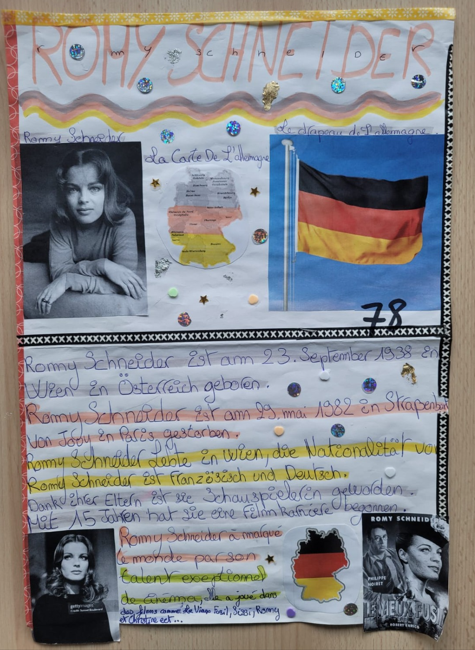 ROMY SCHNEIDER
romy schneider
Romy Schneider
Le drapeau de l'allemagne
La Carte De L'allemagne
78
Romy Schneider ist am 23. September 1938 in
Wien in Österreich geboren.
Romy Schneider ist am 29 mai 1982 in
von Jody in Paris gestorben.
Romy Schneider Lebte in Wien, die Nationalität vo
Romy Schneider ist Französisch und Deutsch.
Dank ihrer Eltern ist sie Schauspielerin geworden.
Mit 15 Jahren hat sie eine Film Karriere begonnen.
Romy Schneider à marqué
le monde par son
talent exceptionnel
de cinéma, elle a joué dans
des films comme Le Vieux Fusil, Sissi, Romy
et Christine ect...
gettyimages
ROMY SCHNEIDER
PHILIPPE
NOIRET
LE VIEUX FUSIL
ROBERT ENRICO